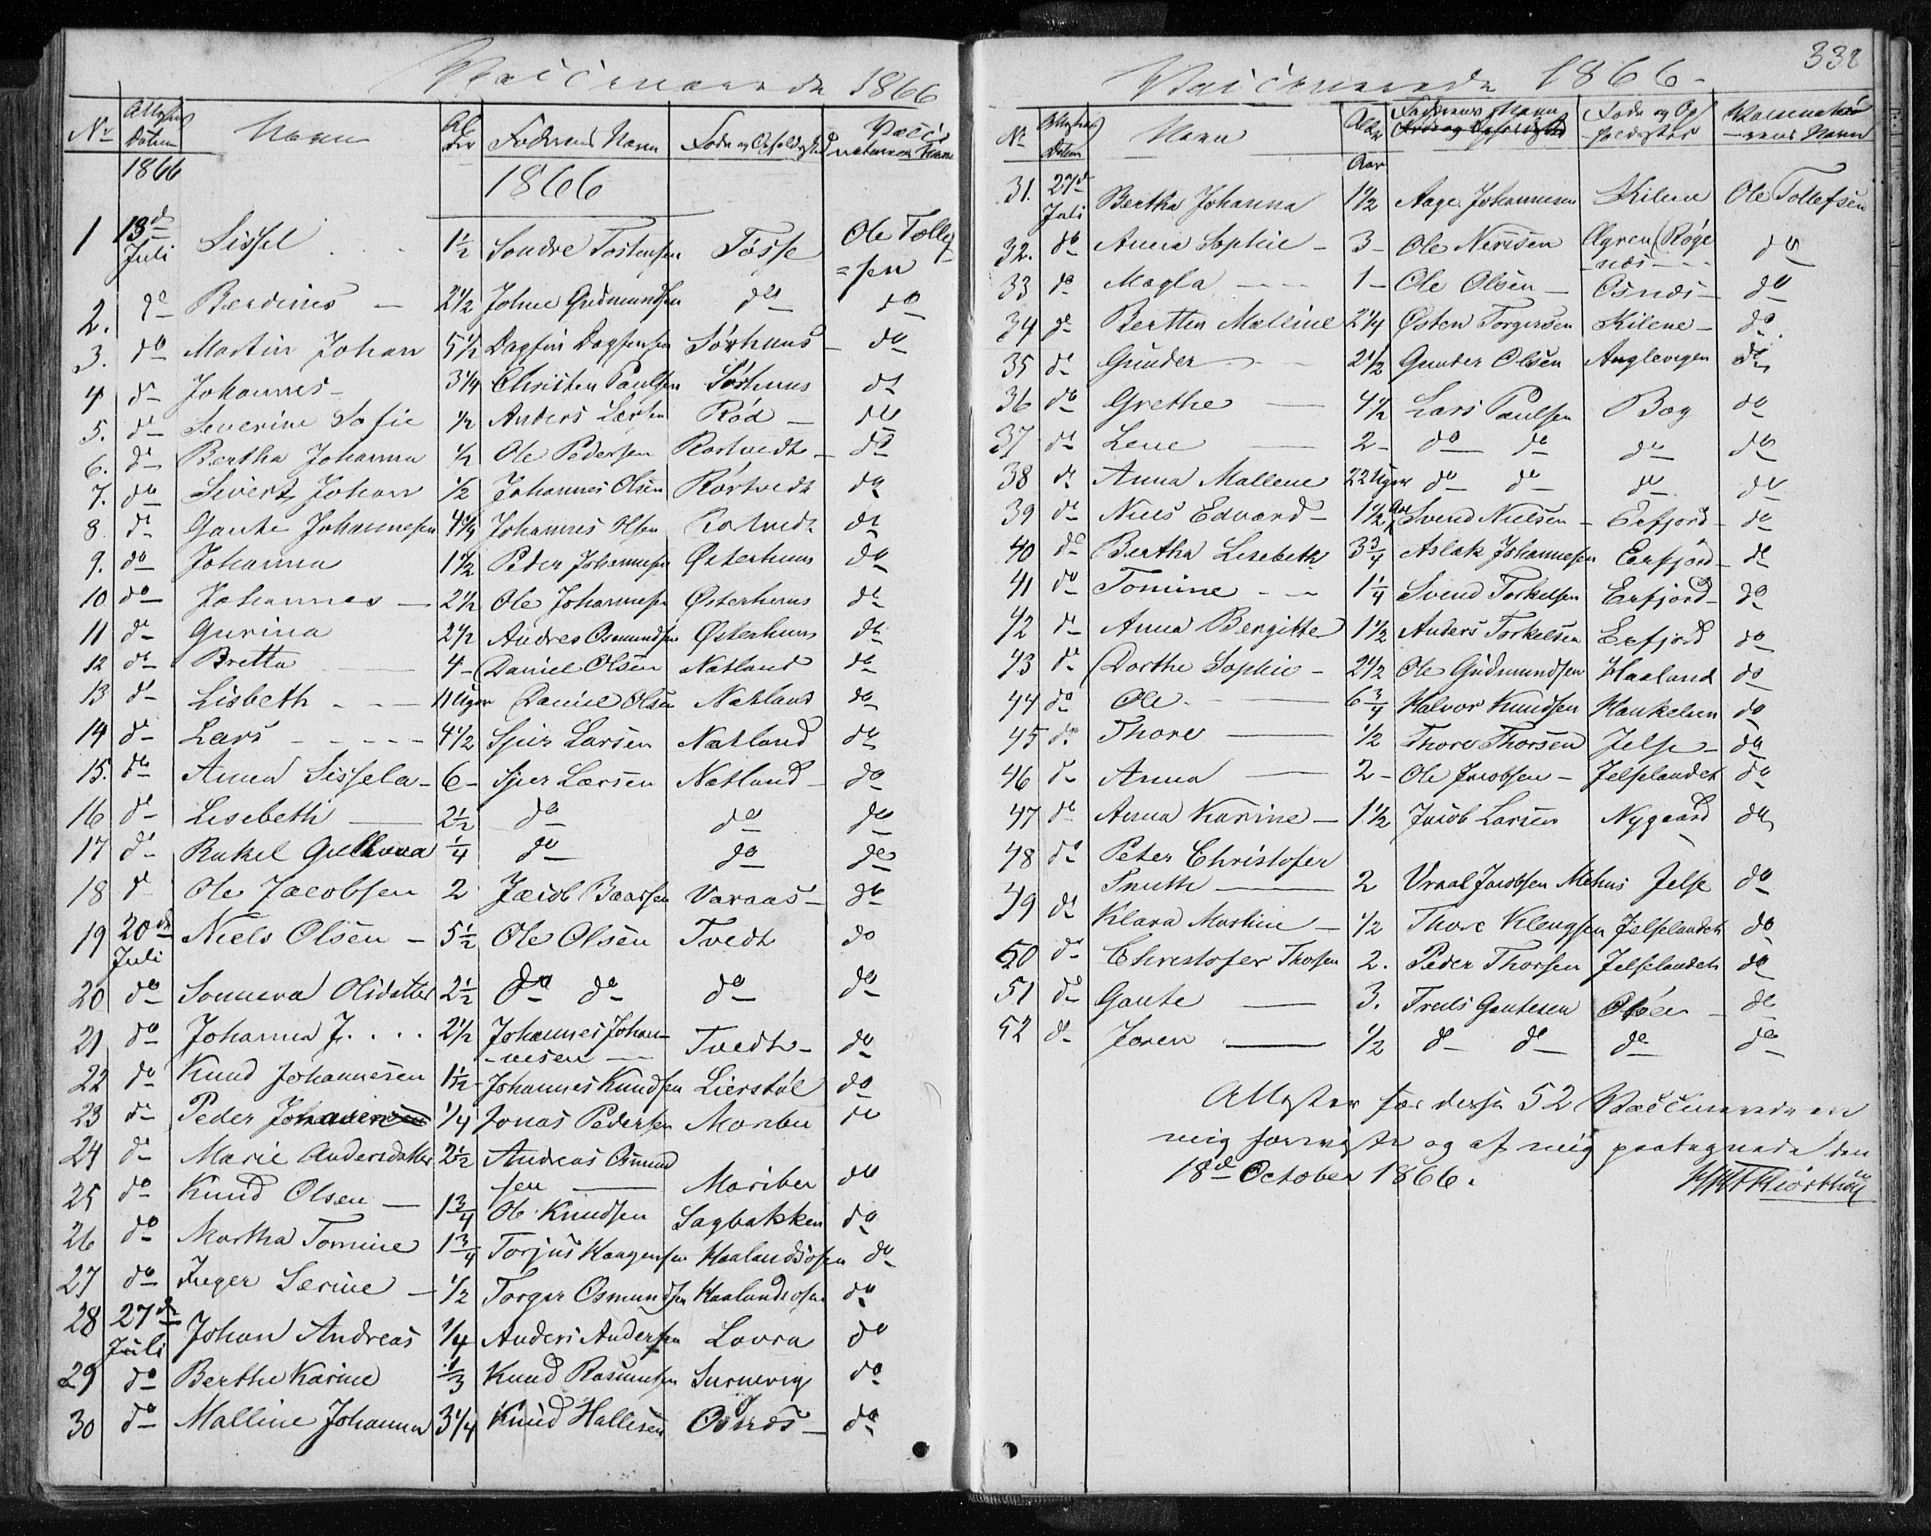 Vaccinerede 1866
Nr Attestens Datum Navn Alder Faderens Navn Føde og Opholdssted Vaccinateurens Navn
1866 1866
1 13de Juli Sissel 1½ Sondre Tostensen Tøsse Ole Tollefsen
2. do Berdines 2½ Johne Gudmundsen do do
3. do Martin Johan 5½ Dagfin Dagfinsen Sørhuus do
4 do Johannes 3¼ Christen Paulsen Sørhuus do
5. do Severine Sofie ½ Anders Larsen Rød do
6. do Bertha Johanna ½ Ole Pedersen Rørtvedt do
7. do Sivert Johan ½ Johannes Olsen Rørtvedt do
8. do Gaute Johannesen 4¼ Johannes Olsen Rørtvedt do
9. do Johanna 1½ Peder Johannesen Østerhuus do
10 do Johannes 2½ Ole Johannesen Østerhuus do
11 do Gurina 2½ Andreas Osmundsen Østerhuus do
12 do Bretta 4 Daniel Olsen Natland do
13 do Lisbeth 11 Uger Daniel Olsen Natland do
14 do Lars 4½ Sjur Larsen Natland do
15. do Anna Sissela 6 Sjur Larsen Natland do
16 do Lisebeth 2½ do do do
17 do Rakel Gullova ¼ do do do
18 do Ole Jacobsen 2 Jacob Baarsen Varaas do
19 20de Juli Niels Olsen 5½ Ole Olsen Tvedt do
20 do Sonneva Olsdatter 2½ do do do do
21 do Johanna J. 2½ Johannes Johannesen Tvedt do
22 do Knud Johannesen 1½ Johannes Knudsen Lierstøl do
23 do Peder ¼ Jonas Pedersen Moriber do
24 do Marie Andersdatter 2½ Andreas Osmundsen Moriber do
25 do Knud Olsen 1¾ Ole Knudsen Sagbakken do
26 do Martha Tomine 1¾ Torjus Haagensen Haalandsosen do
27 do Inger Serine ½ Torger Osmundsen Haalandsosen do
28 27de Juli Johan Andreas ¼ Anders Andersen Lovra do
29 do Berthe Karine ⅓ Knud Rasmusen Surnevig do
30 do Malline Johanna 3¼ Knud Hallesen Osnæs do
Vaccinerede 1866. 338
Nr Attestens Datum Navn Alder Faderens Navn Føde og Opholdssted Vaccinateurens Navn
Aar
31. 27de Juli Bertha Johanna 1½ Aage Johannesen Kilene Ole Tollefsen
32. do Anna Sophie 3 Ole Nerisen Øgren (Røgenæs do
33 do Magla 1 Ole Olsen Osnæs do
34 do Bertha Malline 2¼ Østen Torgersen Kilene do
35 do Gunder 2½ Gunder Olsen Anglevigen do
36 do Grethe 4½ Lars Paulsen Bog do
37 do Lene 2 do do do do
38 do Anna Mallene 22 Uger do do do do
39 do Niels Edvard 1½ Aar Svend Nielsen Erfjord do
40 do Bertha Lisebeth 3¾ Aslak Johannesen Erfjord do
41 do Tomine 1¼ Svend Torkelsen Erfjord do
42 do Anna Bergitte 1½ Anders Torkelsen Erfjord do
43 do Dorthe Sophie 2½ Ole Gudmundsen Haaland do
44 do Ole 6¾ Halvor Knudsen Hankelien do
45 do Thore ½ Thore Thorsen Jelse do
46 do Anna 2 Ole Jacobsen Jelselandet do
47 do Anna Karine 1½ Jacob Larsen Nygaard do
48 do Peter Christofer
Smith 2 Vraal Jacobsen Mehus Jelse do
49 do Klara Martine ½ Thore Klengsen Jelselandet do
50 do Christofer Thorsen 2. Peder Thorsen Jelselandet do
51 do Gaute 3. Trœls Gautesen do
52 do Joren ½ do do do do
Attester for disse 52 Vaccinerede ere
mig foreviste og af mig paategnede den
18de October 1866.